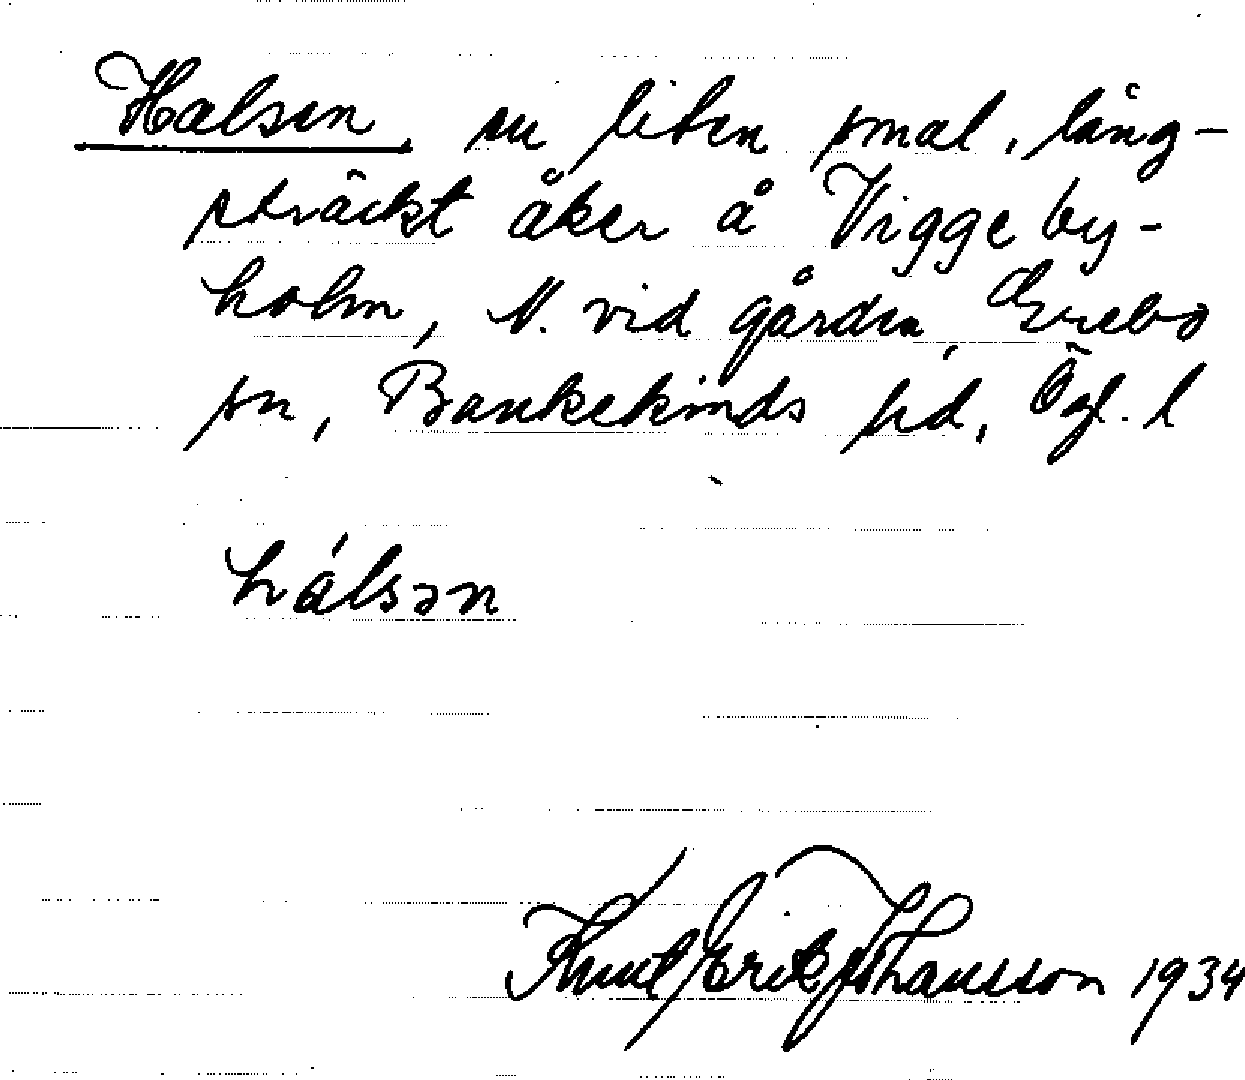 Halsen, en liten smal, lång-
sträckt åker å Viggeby-
holm, N. vid gården, Grebo
sn, Bankekinds hd, Ögl. l
hálsən
Knut Erik Johansson 1934